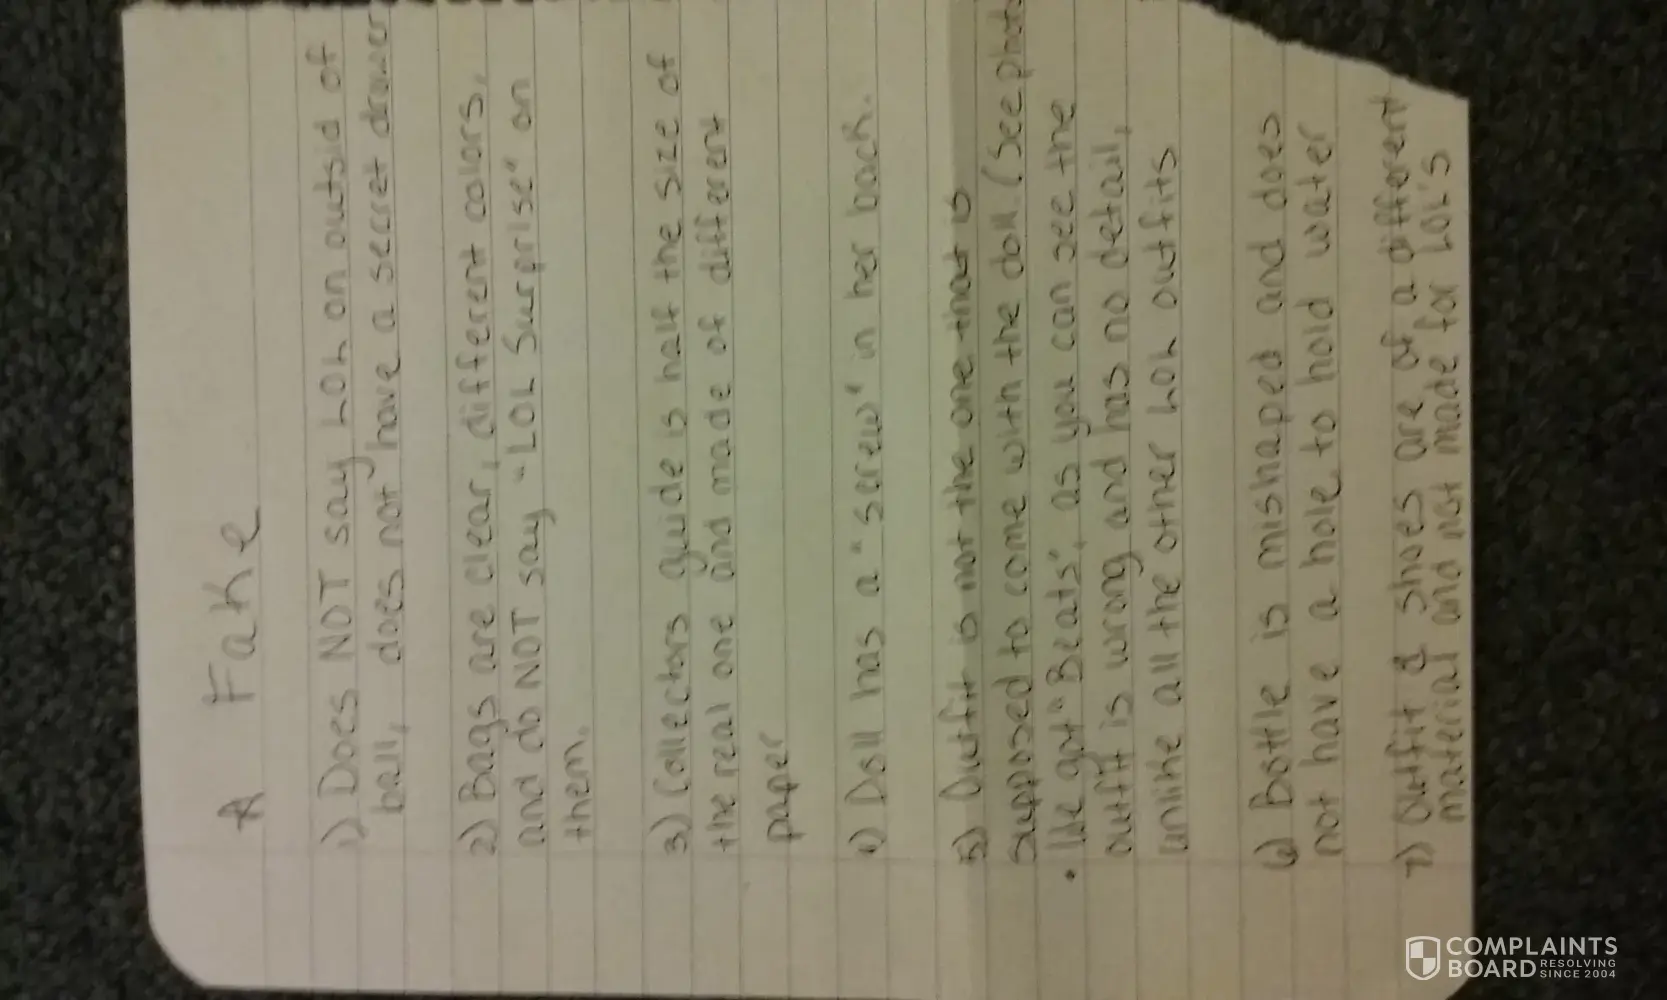 ★ Fake
1) Does NOT say LOL on outsid of
ball, does not have a secret drawer
2) Bags are clear, different colors,
and do NOT say "LOL Surprise" on
them.
3) Collectors guide is half the size of
the real one and made of different
paper
4) Doll has a "screw" in her back.
5) Outfit is not the one that is
supposed to come with the doll. (See photo
• We got "Beats", as you can see the
outfit is wrong and has no detail,
unlike all the other LOL outfits
6) Bottle is mishaped and does
not have a hole to hold water
7) Outfit & shoes are of a different
material and not made for LOL's
COMPLAINTS
BOARD RESOLVING
SINCE 2004